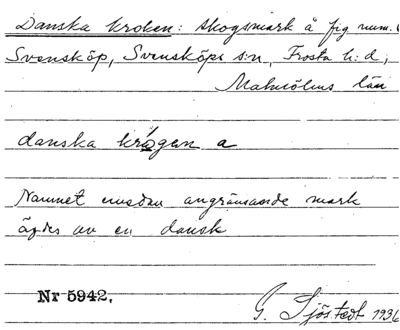 Danska kroken: skogsmark å fig num.
Svensköp, Svensköps s:n, Frosta h:d,
Malmöhus län
danska krågen a
Namnet emedan angränsande mark
ägdes av en dansk
Nr 5942.
G. Sjöstedt 1936